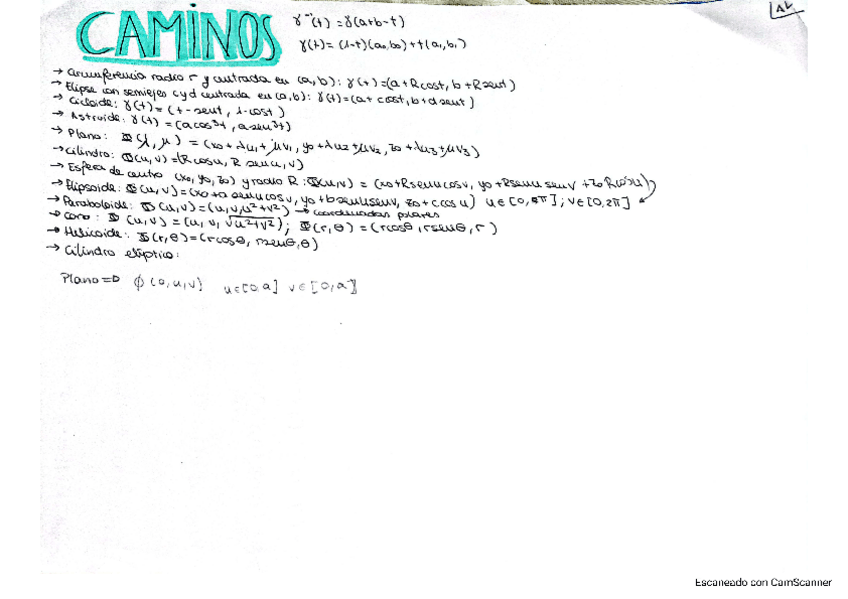 CAMINOS
γ⁻(t) = γ(a+b-t)
γ(t) = (1-t)(a₀,b₀) + t(a₁,b₁)
→ Circunferencia radio r y centrada en (a,b): γ(t) = (a+Rcost, b+Rsent)
→ Elipse con semiejes c y d centrada en (a,b): γ(t) = (a+ccost, b+dsent)
→ Cicloide: γ(t) = (t-sent, 1-cost)
→ Astroide: γ(t) = (acos³t, asen³t)
→ Plano: Φ(λ,μ) = (x₀+λu₁+μv₁, y₀+λu₂+μv₂, z₀+λu₃+μv₃)
→ Cilindro: Φ(u,v) = (Rcosu, R senu, v)
→ Esfera de centro (x₀,y₀,z₀) y radio R: Φ(u,v) = (x₀+Rsenucosv, y₀+Rsenu senv + z₀ Rcosu)
→ Elipsoide: Φ(u,v) = (x₀+a senu cosv, y₀+bsenusenv, z₀+ccosu) u∈[0,π]; v∈[0,2π]
→ Paraboloide: Φ(u,v) = (u,v,u²+v²) → coordenadas polares
→ Cono: Φ(u,v) = (u, v, √u²+v²); Φ(r,θ) = (rcosθ, rsenθ, r)
→ Helicoide: Φ(r,θ) = (rcosθ, rsenθ, θ)
→ Cilindro elíptico:
Plano ⇒ φ(0,u,v) u∈[0,a] v∈[0,a]
Escaneado con CamScanner